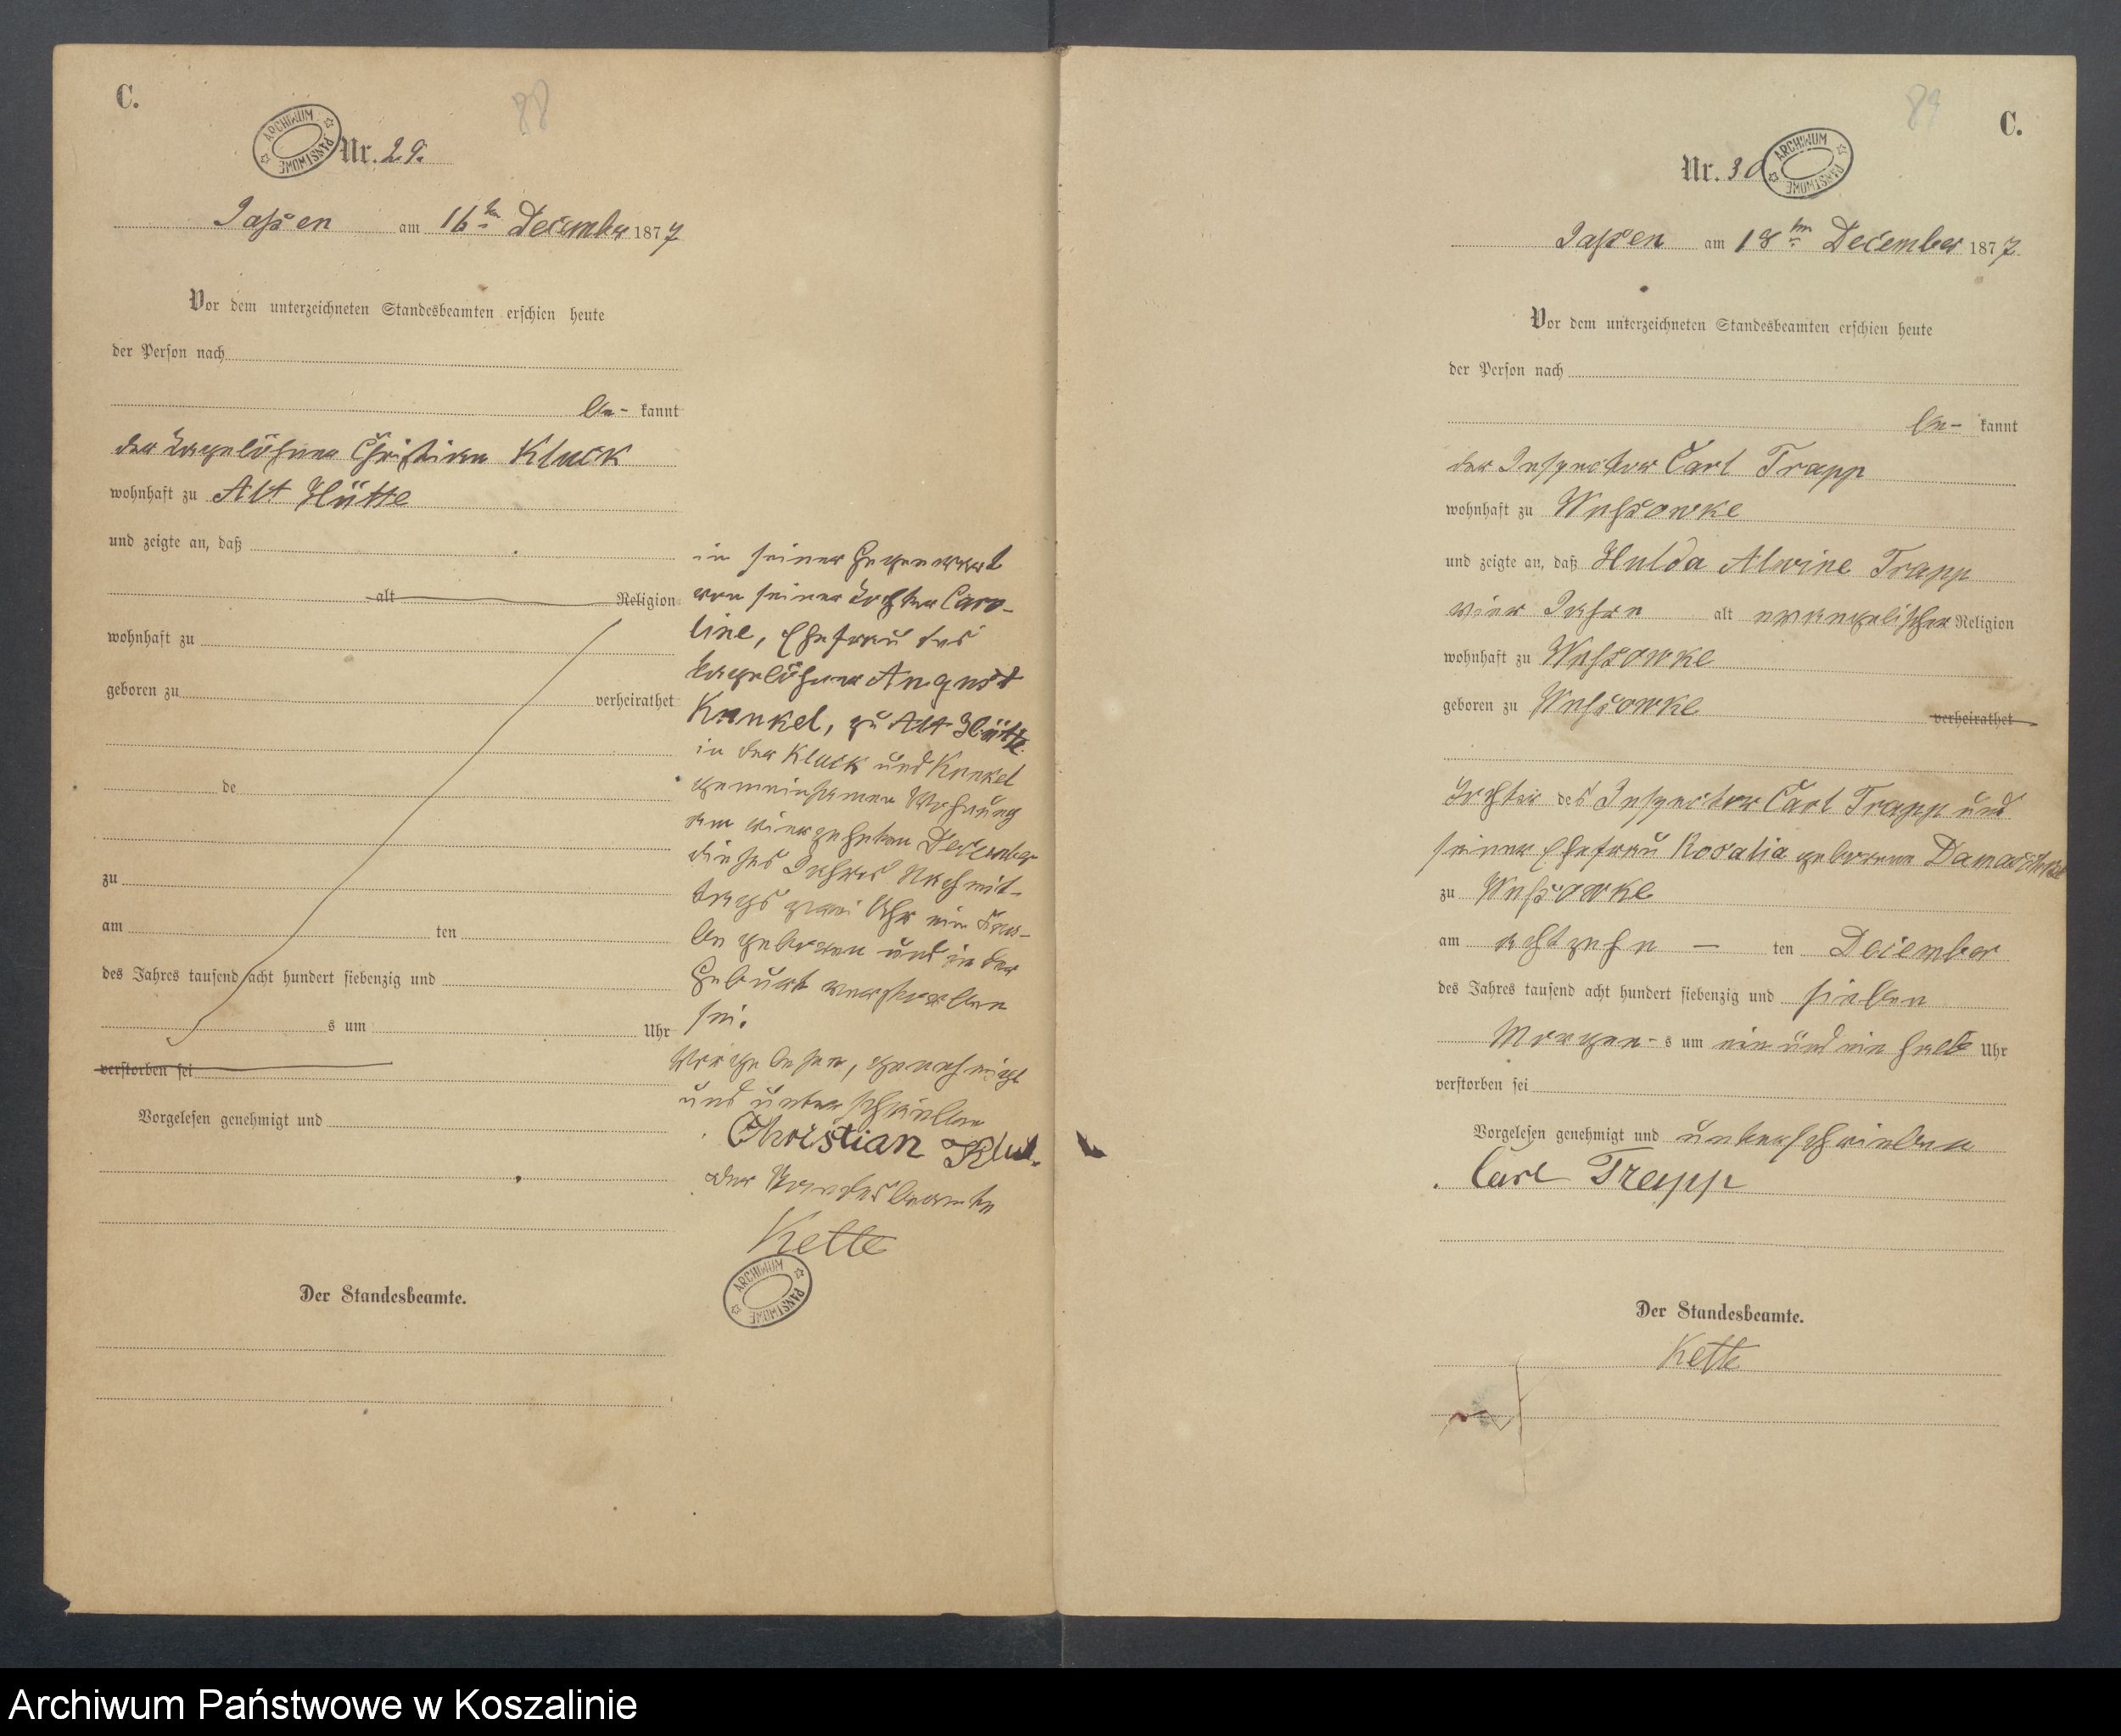 C.
88
ARCHIWUM PAŃSTWOWE
Nr. 29.
Jassen am 16ten December 1877
Vor dem unterzeichneten Standesbeamten erschien heute
der Person nach
be- kannt
der Tagelöhner Christian Kluck
wohnhaft zu Alt Hütte
und zeigte an, daß
alt Religion
wohnhaft zu
geboren zu verheirathet
de
zu
am ten
des Jahres tausend acht hundert siebenzig und
s um Uhr
verstorben sei
Vorgelesen genehmigt und
Der Standesbeamte.
in seiner Gegenwart
von seiner Tochter Caro-
line, Ehefrau des
Tagelöhner August
Kunkel, zu Alt Hütte
in der Kluck und Kunkel
gemeinsamen Wohnung
am vierzehnten December
dieses Jahres Nachmit-
tags zwei Uhr ein Kna-
be geboren und in der
Geburt verstorben
sei.
Vorgelesen, genehmigt
und unterschrieben
Christian Kluck
Der Standesbeamte
Kette
ARCHIWUM PAŃSTWOWE
89
C.
Nr. 30
ARCHIWUM PAŃSTWOWE
Jassen am 18ten December 1877
Vor dem unterzeichneten Standesbeamten erschien heute
der Person nach
be- kannt
der Inspector Carl Trapp
wohnhaft zu Wussowke
und zeigte an, daß Hulda Alwine Trapp
vier Jahre alt evangelischer Religion
wohnhaft zu Wussowke
geboren zu Wussowke verheirathet
Tochter des Inspector Carl Trapp und
seiner Ehefrau Rosalia geborene
zu Wussowke
am achtzehn – ten December
des Jahres tausend acht hundert siebenzig und sieben
Morgen- s um ein und ein halb Uhr
verstorben sei
Vorgelesen genehmigt und unterschrieben
Carl Trapp
Der Standesbeamte.
Kette
Archiwum Państwowe w Koszalinie